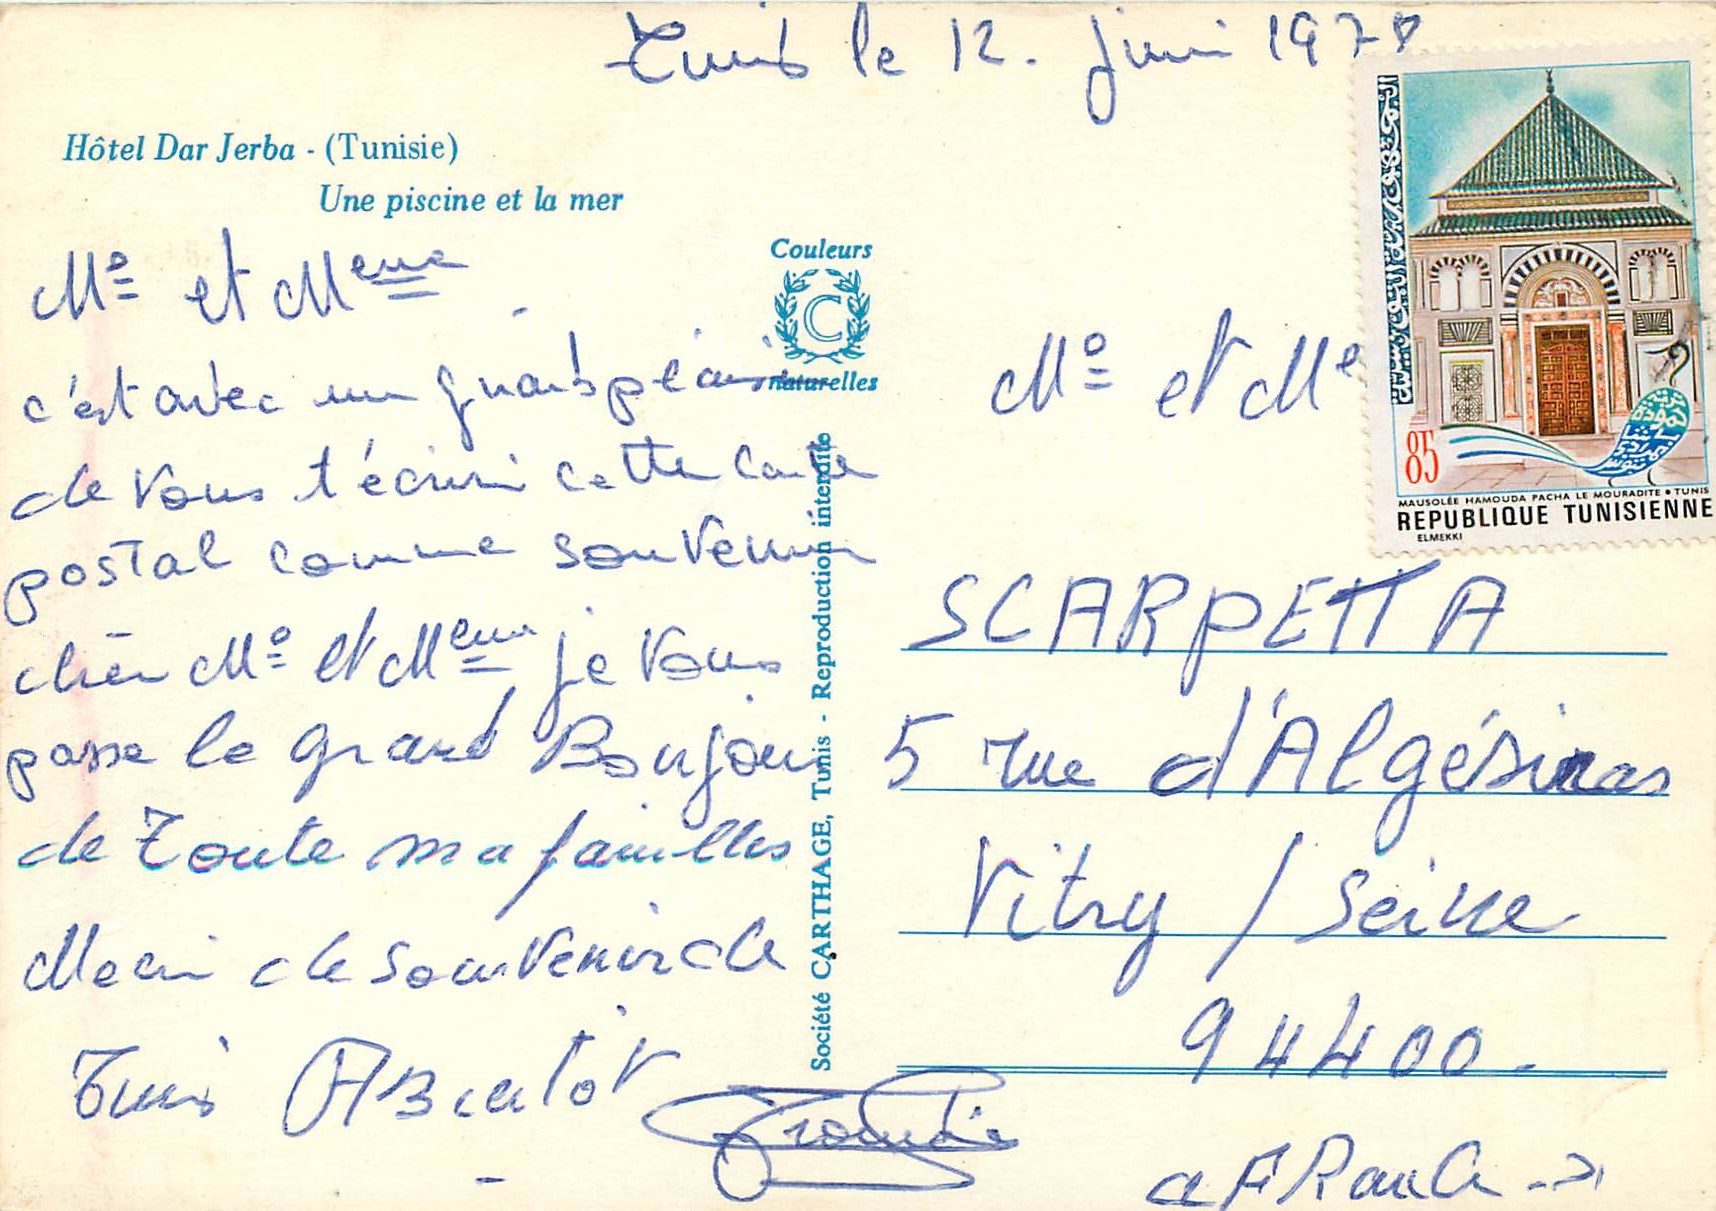 Tunis le 12. juin 1978
Hôtel Dar Jerba - (Tunisie)
Une piscine et la mer
Mº et Meme
c'est avec un grand plaisir
de vous t'écrire cette carte
postal comme souvenir
chèr Mº et Meme je vous
passe le grand Boujour
de Toute ma familles
de souvenir de
Tunis ABientôt
Couleurs
C
naturelles
Société CARTHAGE, Tunis - Reproduction interdite
Mº et Me
SCARPETTA
5 rue d'Algésiras
Vitry / Seine
94400.
a FRance
85
MAUSOLÉE HAMOUDA PACHA LE MOURADITE • TUNIS
REPUBLIQUE TUNISIENNE
ELMEKKI